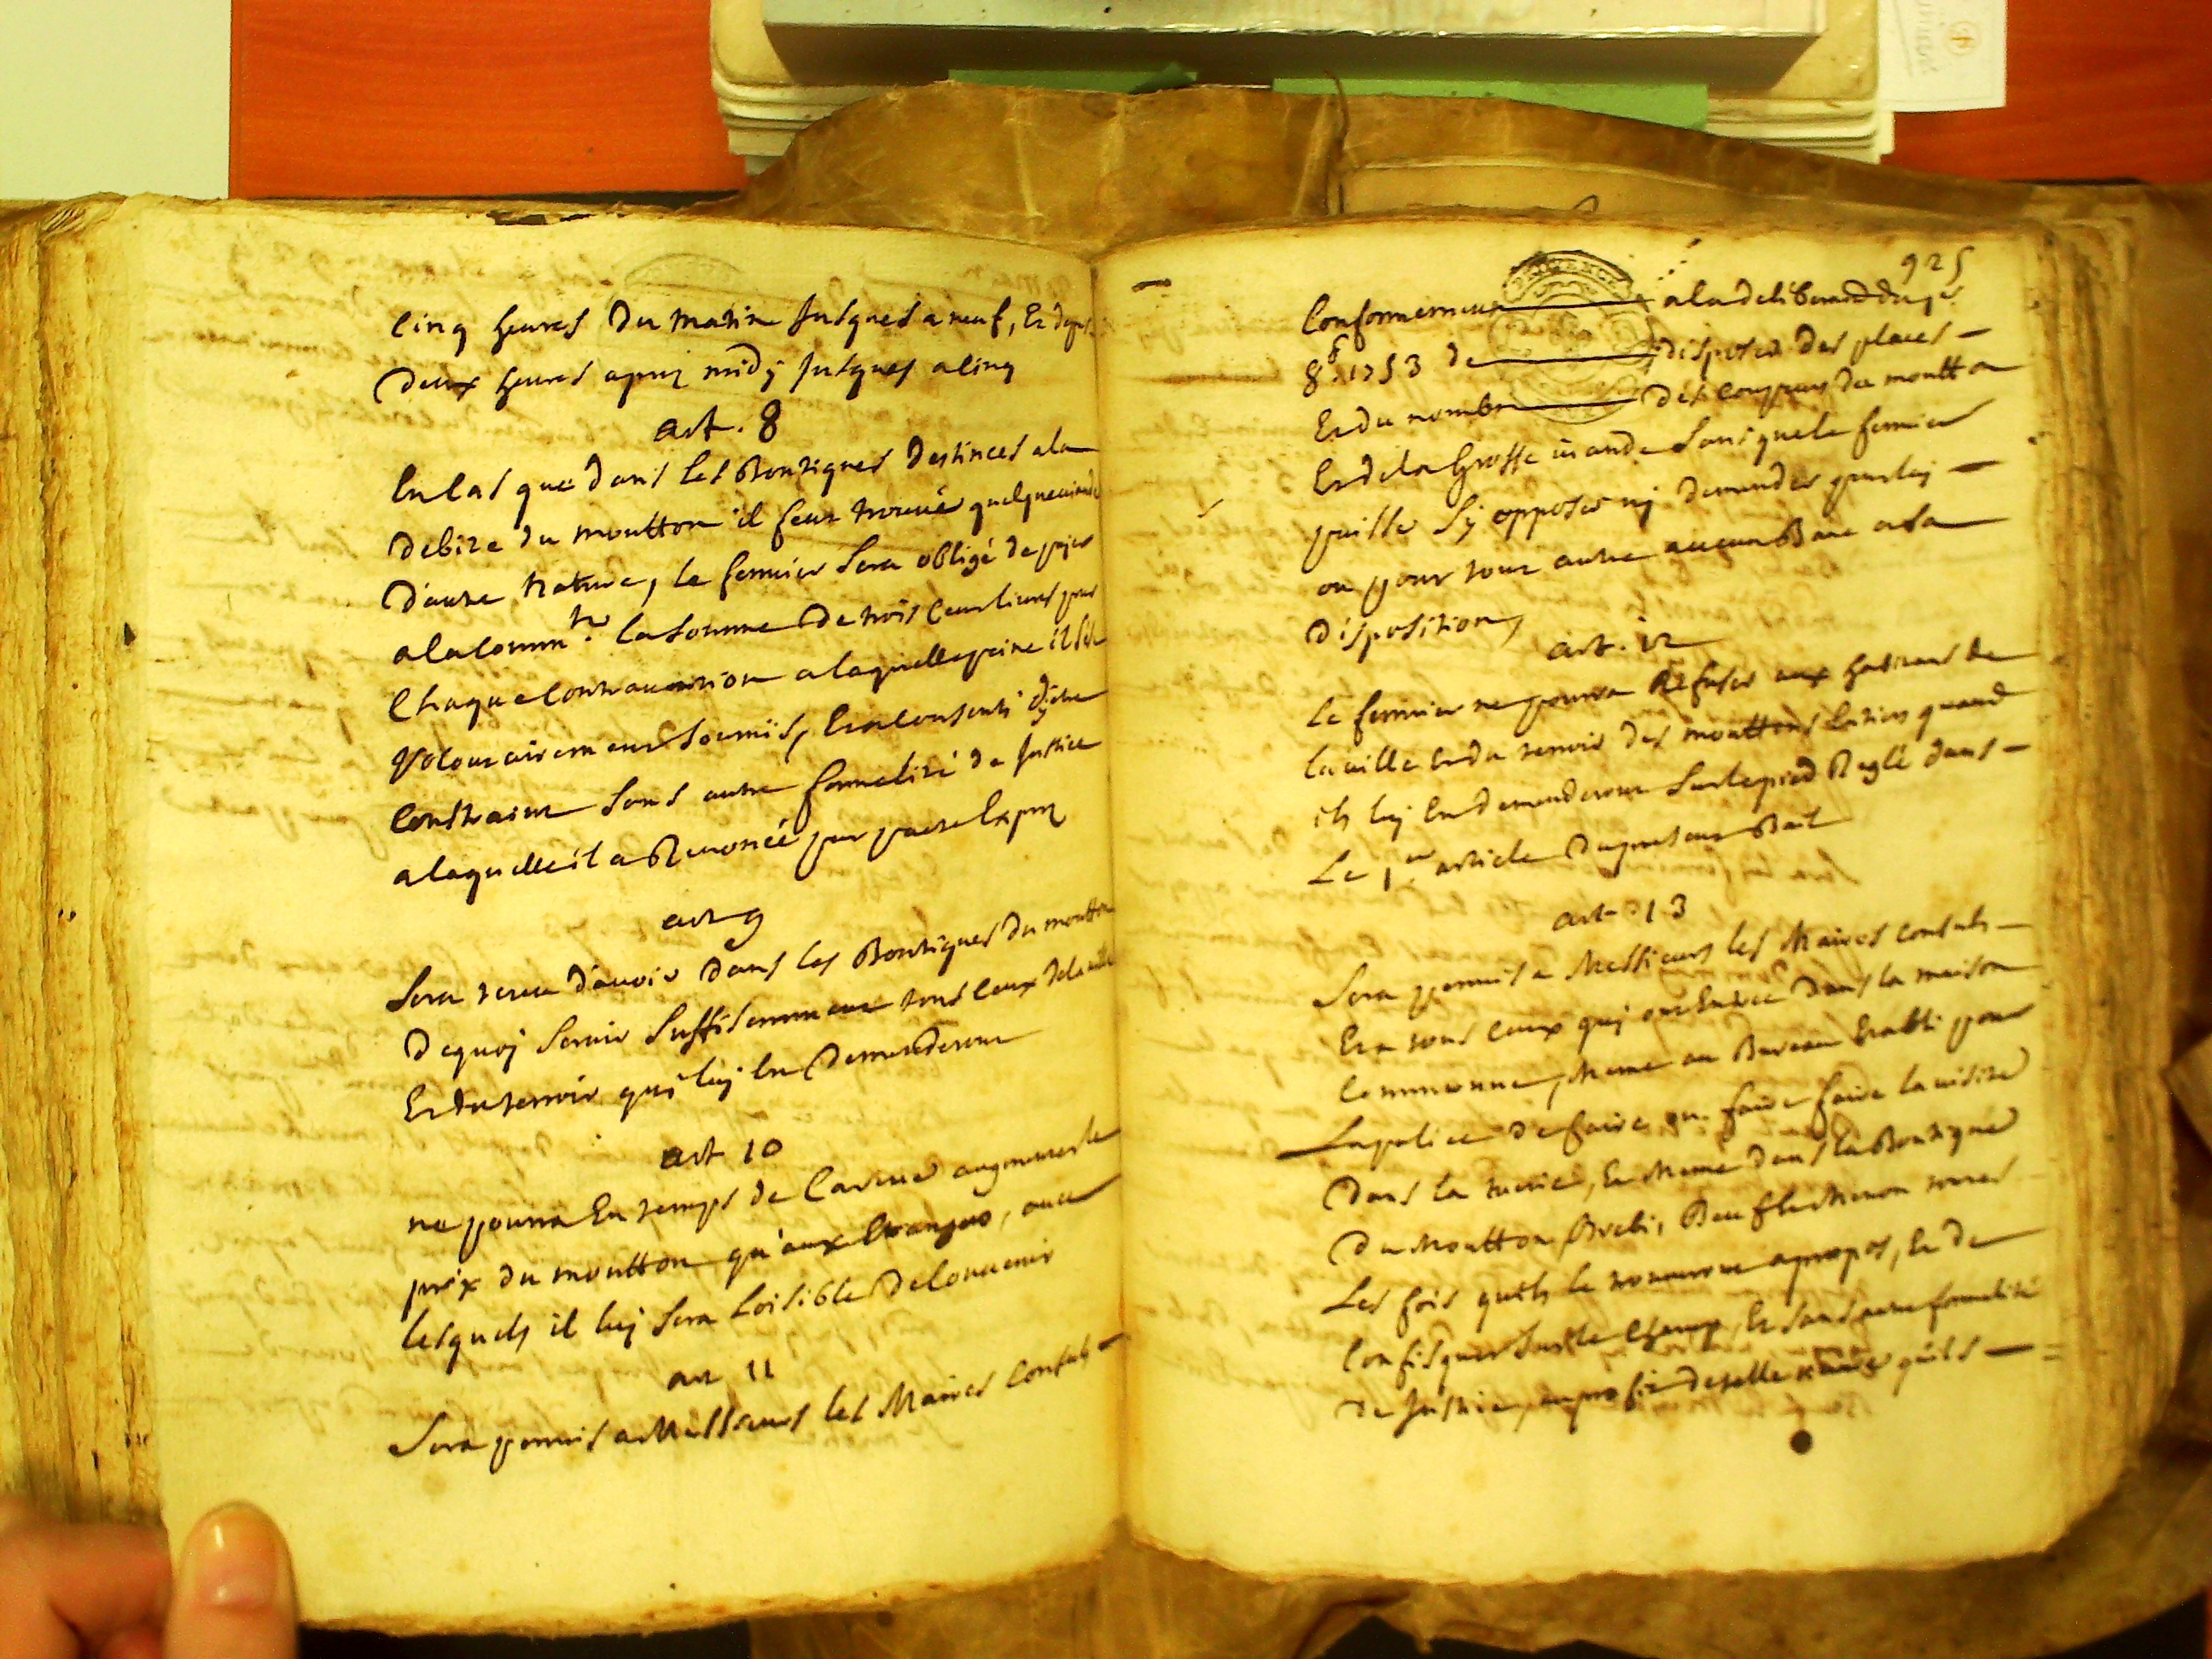 cinq heures du matin jusques a neuf, Et depuis
deux heures apres midy jusques a cinq
art. 8
En cas que dans les Boutiques destinées a la
debite du moutton il feut trouvé quelque viande
d'autre nature, le fermier sera obligé de payer
a la commté. la somme de trois cent livres pour
Chaque contravention a laquelle peine il s'est
volontairement soumis, Et a consenti d'y être
constraint sans autre formalité de Justice
a laquelle il a Renoncé par pacte exprez
art 9
sera tenu d'avoir dans les Boutiques du moutton
dequoj servir suffisemment tous ceux de la ville
Et du terroir qui luj En demanderont
art 10
ne pourra En temps de Careme augmenter le
prix du moutton qu'aux Etrangers, avec
lesquels il luj sera loisible de convenir
art 11
sera permis a Messieurs les Maires Consuls
925
Conformement a la deliberaon du
8bre 1753 de disposer des places
Et du nombre des coupeurs du moutton
Et de la Grosse viande sans que le fermier
puisse s'y opposer nj demander pour luj
ou pour tout autre aucun Banc a sa
disposition,
art. 12
Le fermier ne pourra Refuser aux habitans de
la ville Et du terroir des mouttons Entiers quand
ils luj En demanderont sur le pied Reglé dans
Le 1er article du present Bail
art 13
Sera permis a Messieurs les Maires consuls
Et a tous ceux quj ont Entrée dans la maison
Commune, Meme au Bureau Etabli pour
La police de faire ou faire faire la visite
dans la tuerie, Et Meme dans la Boutique
du Moutton Brebi, Beuf Et Menon toutes
Les fois quils le trouveront apropos, Et de
Confisquer sur le Champ, Et sans autre formalité
de Justice, au profit de telle œuvre quils